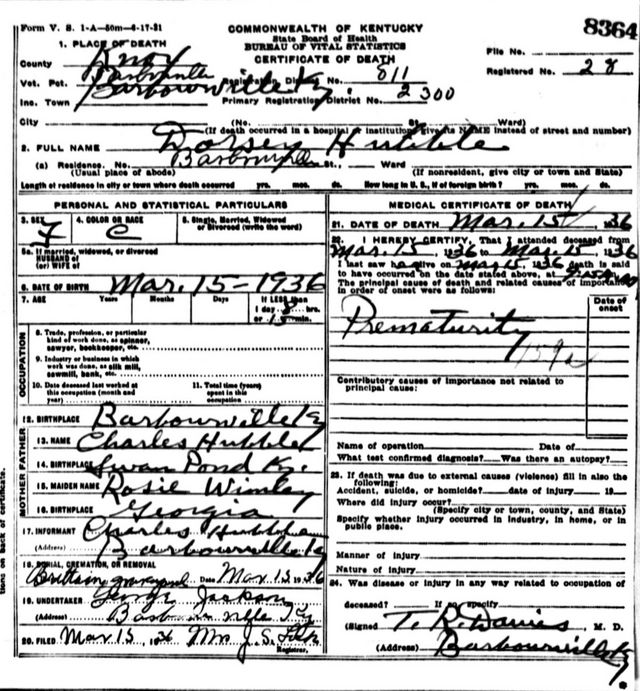 Form V. S. 1-A—50m—6-17-31
COMMONWEALTH OF KENTUCKY
State Board of Health
BUREAU OF VITAL STATISTICS
CERTIFICATE OF DEATH
8364
File No.
Registered No. 28
1. PLACE OF DEATH
County Knox
Vot. Pct. Barbourville Registration District No. 811
Inc. Town Barbourville Ky. Primary Registration District No. 2300
City (No. St. Ward)
(If death occurred in a hospital or institution, give its NAME instead of street and number)
2. FULL NAME Dorsey Hubble
(a) Residence. No. Barbourville St., Ward
(Usual place of abode) (If nonresident, give city or town and State)
Length of residence in city or town where death occurred yrs. mos. ds. How long in U. S., if of foreign birth? yrs. mos. ds.
PERSONAL AND STATISTICAL PARTICULARS
3. SEX F
4. COLOR OR RACE C
5. Single, Married, Widowed or Divorced (write the word)
5a If married, widowed, or divorced
HUSBAND of
(or) WIFE of
6. DATE OF BIRTH Mar. 15-1936
7. AGE Years Months Days If LESS than
1 day 8 hrs.
or 15 min.
OCCUPATION
8. Trade, profession, or particular
kind of work done, as spinner,
sawyer, bookkeeper, etc.
9. Industry or business in which
work was done, as silk mill,
sawmill, bank, etc.
10. Date deceased last worked at
this occupation (month and
year)
11. Total time (years)
spent in this
occupation
12. BIRTHPLACE Barbourville Ky
FATHER
13. NAME Charles Hubble
14. BIRTHPLACE Swan Pond Ky.
MOTHER
15. MAIDEN NAME Rosie Wimley
16. BIRTHPLACE Georgia
17. INFORMANT Charles Hubble
(Address) Barbourville Ky
18. BURIAL, CREMATION, OR REMOVAL
Date Mar 15 36
19. UNDERTAKER George Jackson
(Address) Barbourville Ky
20. FILED Mar 15 36 Mrs J. S.
Registrar.
MEDICAL CERTIFICATE OF DEATH
21. DATE OF DEATH Mar. 15 36
22. I HEREBY CERTIFY, That I attended deceased from
Mar. 15, 1936 to Mar. 15, 1936
I last saw h alive on Mar 15, 1936 death is said
to have occurred on the date stated above, at
The principal cause of death and related causes of importance
in order of onset were as follows:
Date of onset
Prematurity
159a
Contributory causes of importance not related to
principal cause:
Name of operation Date of
What test confirmed diagnosis? Was there an autopsy?
23. If death was due to external causes (violence) fill in also the
following:
Accident, suicide, or homicide? date of injury 19
Where did injury occur?
(Specify city or town, county, and State)
Specify whether injury occurred in industry, in home, or in
public place.
Manner of injury
Nature of injury
24. Was disease or injury in any way related to occupation of
deceased? If so, specify
(Signed T. R. Davies, M. D.
(Address) Barbourville Ky.
tions on back of certificate.